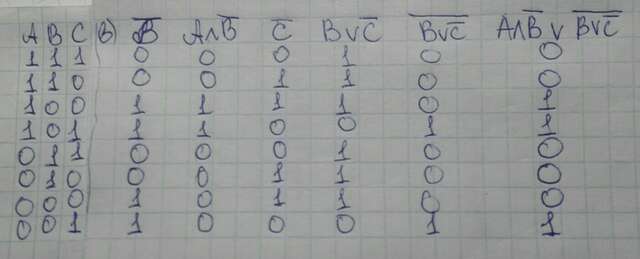 A B C В) B̅ A∧B̅ C̅ B∨C̅ B̅∨̅C̅̅ A∧B̅ ∨ B̅∨̅C̅̅
1 1 1 0 0 0 1 0 0
1 1 0 0 0 1 1 0 0
1 0 0 1 1 1 1 0 1
1 0 1 1 1 0 0 1 1
0 1 1 0 0 0 1 0 0
0 1 0 0 0 1 1 0 0
0 0 0 1 0 1 1 0 0
0 0 1 1 0 0 0 1 1